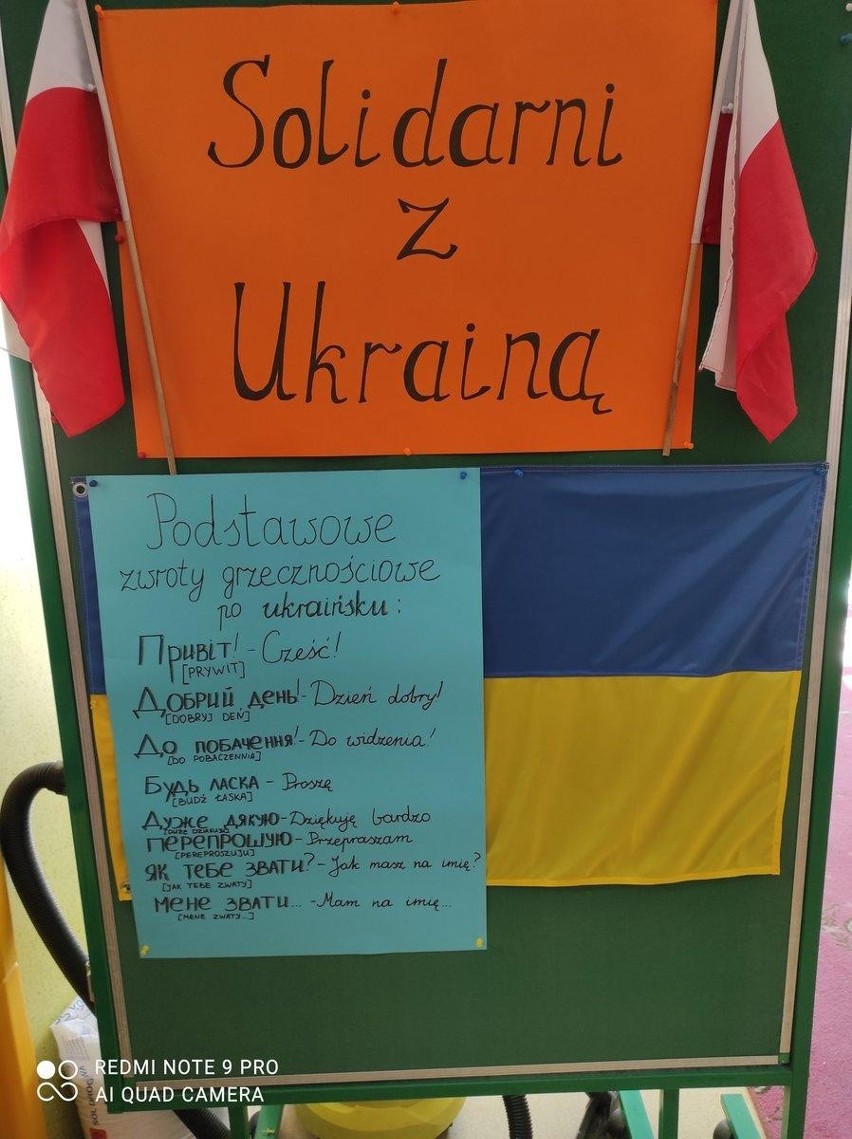 Solidarni
z
Ukrainą
Podstawowe
zwroty grzecznościowe
po ukraińsku:
Привіт! - Cześć!
[PRYWIT]
Добрий день! - Dzień dobry!
[DOBRYJ DEŃ]
До побачення! - Do widzenia!
[DO POBACZENNIA]
Будь ласка - Proszę
[BUDŹ ŁASKA]
Дуже дякую - Dziękuję bardzo
перепрошую - Przepraszam
[PEREPROSZUJU]
як тебе звати? - Jak masz na imię?
[JAK TEBE ZWATY]
мене звати... - Mam na imię...
[MENE ZWATY...]
REDMI NOTE 9 PRO
AI QUAD CAMERA